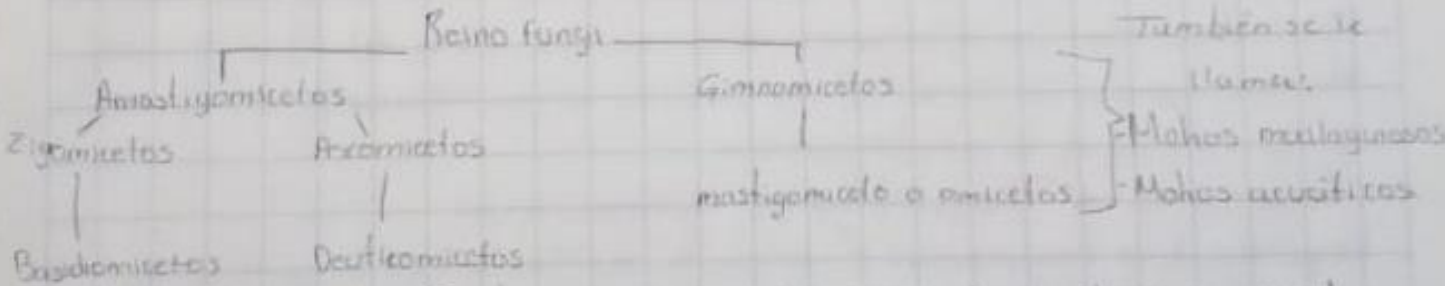 Reino fungi
Amastigomicetos
Gimnomicetos
Zigomicetos
Ascomicetos
mastigomiceto o omicetos
Basidiomicetos
Deuteomicetos
También se le
llaman:
- Mohos mucilaginosos
- Mohos acuáticos